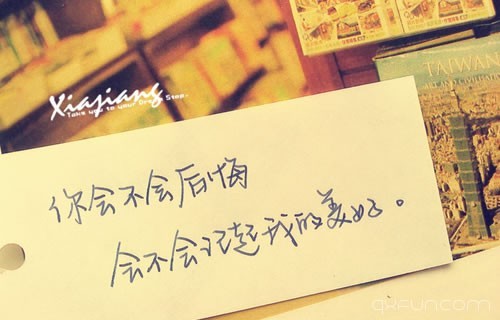 Xiajiang
Take you to your
Stop.
TAIWAN
你会不会后悔
会不会记起我的美好。
qxfun.com